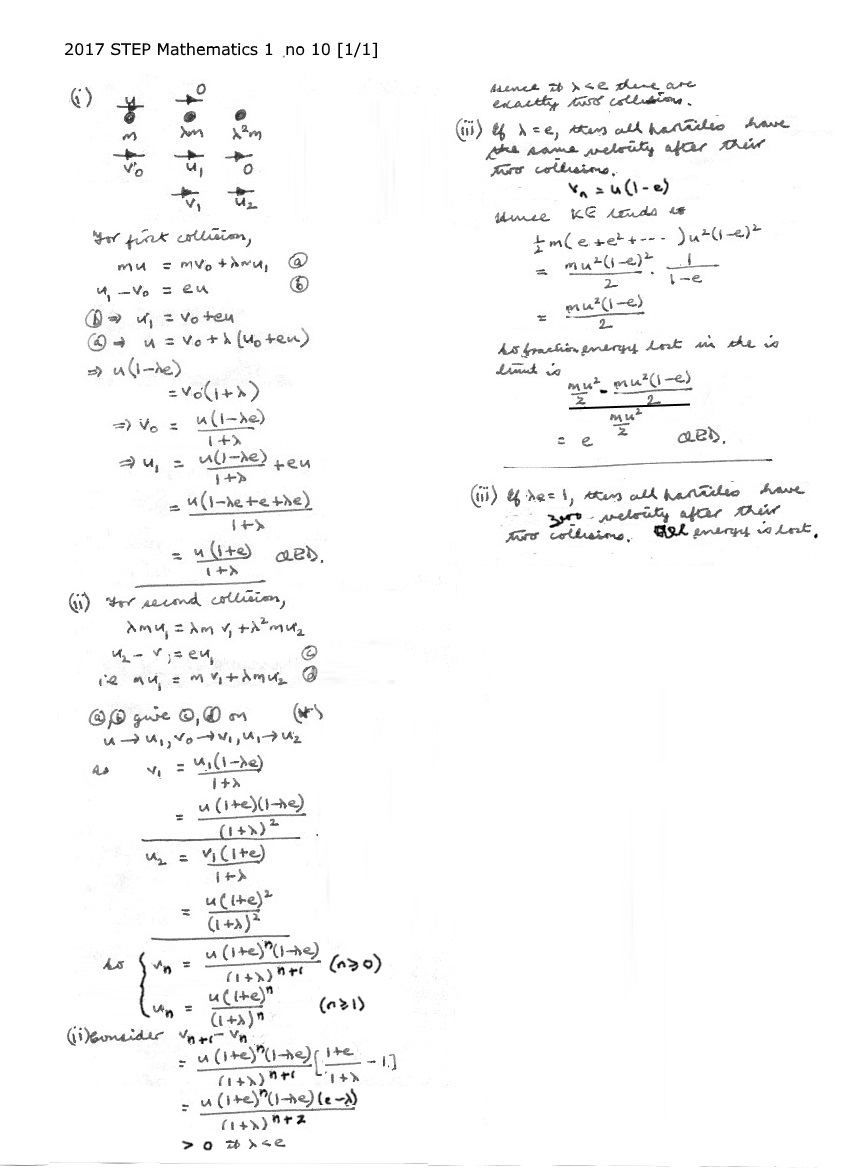 2017 STEP Mathematics 1 no 10 [1/1]
(i) u 0
m λm λ²m
v₀ u₁ 0
v₁ u₂
For first collision,
mu = mv₀ + λmu₁ ⓐ
u₁ - v₀ = eu ⓑ
ⓑ ⇒ u₁ = v₀ + eu
ⓐ ⇒ u = v₀ + λ(u₀ + eu)
⇒ u(1-λe)
= v₀(1+λ)
⇒ v₀ = u(1-λe)/(1+λ)
⇒ u₁ = u(1-λe)/(1+λ) + eu
= u(1-λe+e+λe)/(1+λ)
= u(1+e)/(1+λ) QED.
(ii) For second collision,
λmu₁ = λm v₁ + λ²mu₂
u₂ - v₁ = eu₁ ⓒ
i.e mu₁ = mv₁ + λmu₂ ⓓ
ⓐ,ⓑ give ⓒ,ⓓ on (*)
u → u₁, v₀ → v₁, u₁ → u₂
so v₁ = u₁(1-λe)/(1+λ)
= u(1+e)(1-λe)/(1+λ)²
u₂ = v₁(1+e)/(1+λ)
= u(1+e)²/(1+λ)²
So { vₙ = u(1+e)ⁿ(1-λe)/(1+λ)ⁿ⁺¹ (n≥0)
uₙ = u(1+e)ⁿ/(1+λ)ⁿ (n≥1)
(ii) Consider vₙ₊₁ - vₙ
= u(1+e)ⁿ(1-λe)/(1+λ)ⁿ⁺¹ [(1+e)/(1+λ) - 1]
= u(1+e)ⁿ(1-λe)(e-λ)/(1+λ)ⁿ⁺²
> 0 if λ<e
Hence if λ<e there are
exactly two collisions.
(iii) If λ = e, then all particles have
the same velocity after their
two collisions.
vₙ = u(1-e)
Hence KE tends to
½m(e+e²+---)u²(1-e)²
= mu²(1-e)²/2 · 1/(1-e)
= mu²(1-e)/2
So fraction energy lost in the is
limit is
(mu²/2 - mu²(1-e)/2)/(mu²/2)
= e QED.
(iii) If λe = 1, then all particles have
zero velocity after their
two collisions. energy is lost.